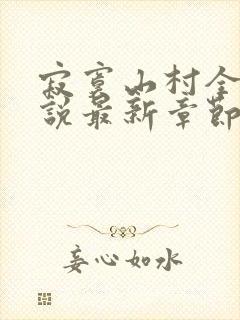 寂寞山村全
說最新章節
妄心如水